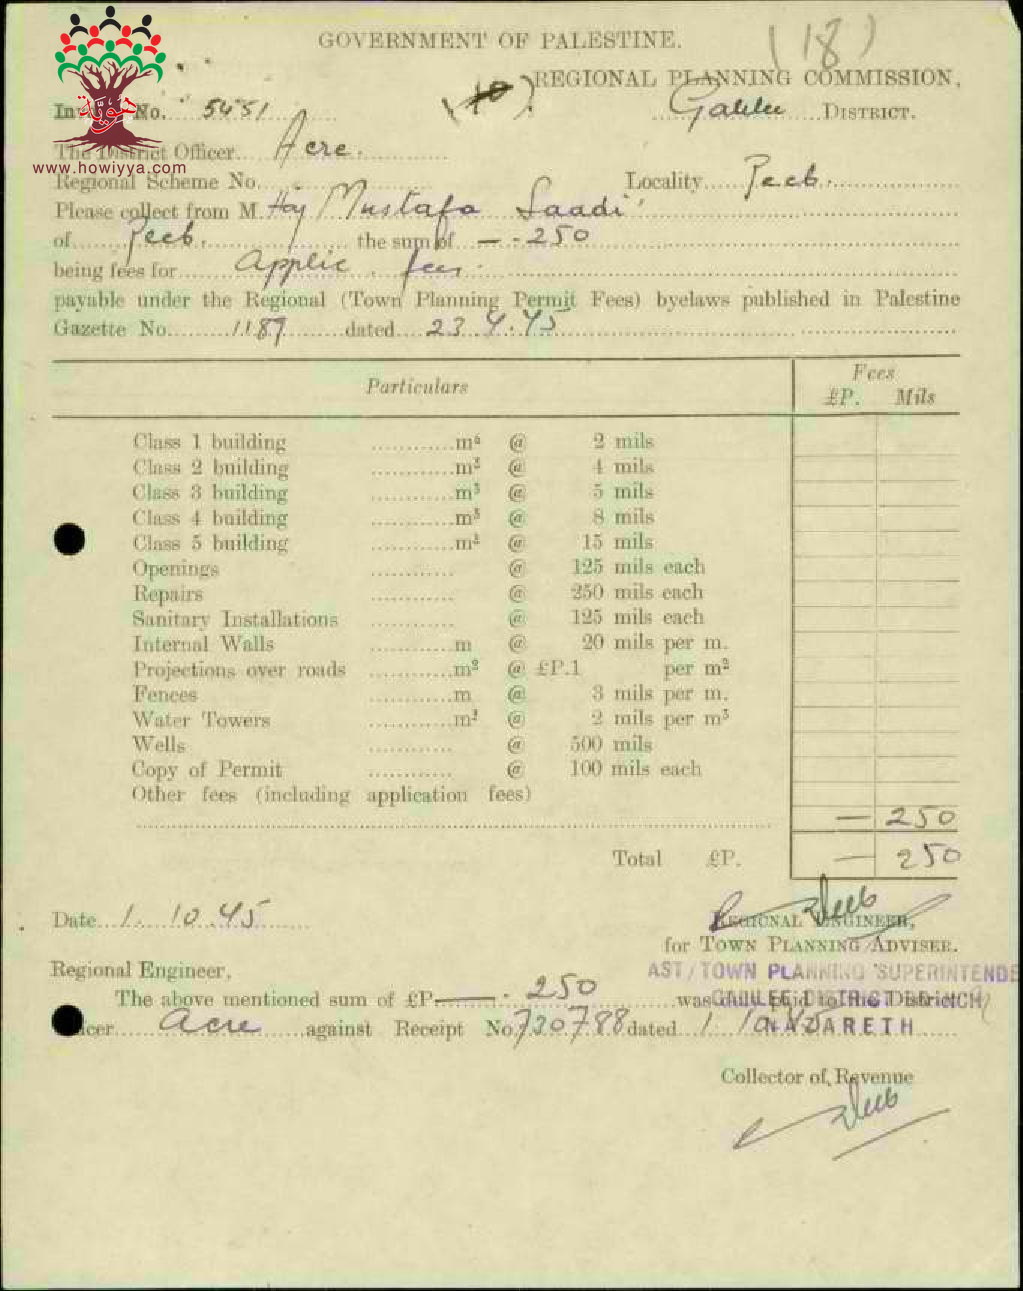 GOVERNMENT OF PALESTINE.
(18)
REGIONAL PLANNING COMMISSION,
(10)
No. 5451 Galilee DISTRICT.
هوية
The District Officer Acre.
www.howiyya.com
Regional Scheme No. Locality Zeeb.
Please collect from M. Haj Mustafa Saadi
of Zeeb. the sum of — - 250
being fees for Applic. fees.
payable under the Regional (Town Planning Permit Fees) byelaws published in Palestine
Gazette No. 1187 dated 23.4.45
Particulars Fees
£P. Mils
Class 1 building m³ @ 2 mils
Class 2 building m³ @ 4 mils
Class 3 building m³ @ 5 mils
Class 4 building m³ @ 8 mils
Class 5 building m³ @ 15 mils
Openings @ 125 mils each
Repairs @ 250 mils each
Sanitary Installations @ 125 mils each
Internal Walls m @ 20 mils per m.
Projections over roads m² @ £P.1 per m²
Fences m @ 3 mils per m.
Water Towers m³ @ 2 mils per m³
Wells @ 500 mils
Copy of Permit @ 100 mils each
Other fees (including application fees)
— 250
Total £P. — 250
Date 1.10.45
REGIONAL ENGINEER,
for TOWN PLANNING ADVISER.
Regional Engineer, AST/TOWN PLANNING SUPERINTENDE
The above mentioned sum of £P — - 250 was duly paid to the District
GALILEE DISTRICT
Acre against Receipt No. 730788 dated 1.10.45
NAZARETH
Collector of Revenue